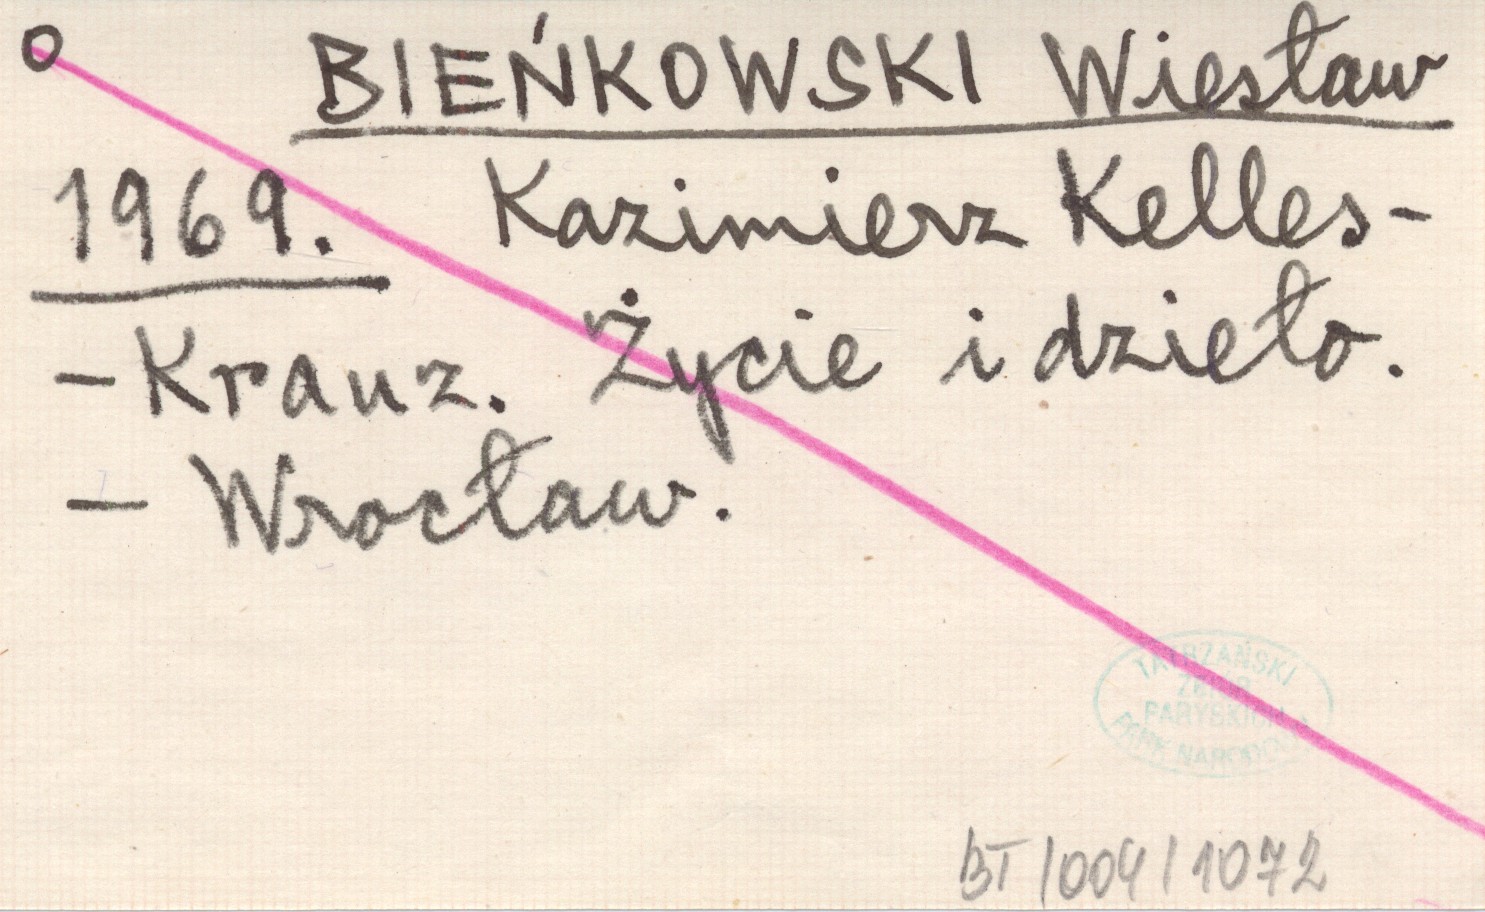 BIEŃKOWSKI Wiesław
1969. Kazimierz Kelles-
-Krauz. Życie i dzieło.
- Wrocław.
TATRZAŃSKI
ZBIÓR
PARYSKICH
PARK NARODOWY
BT/004/1072